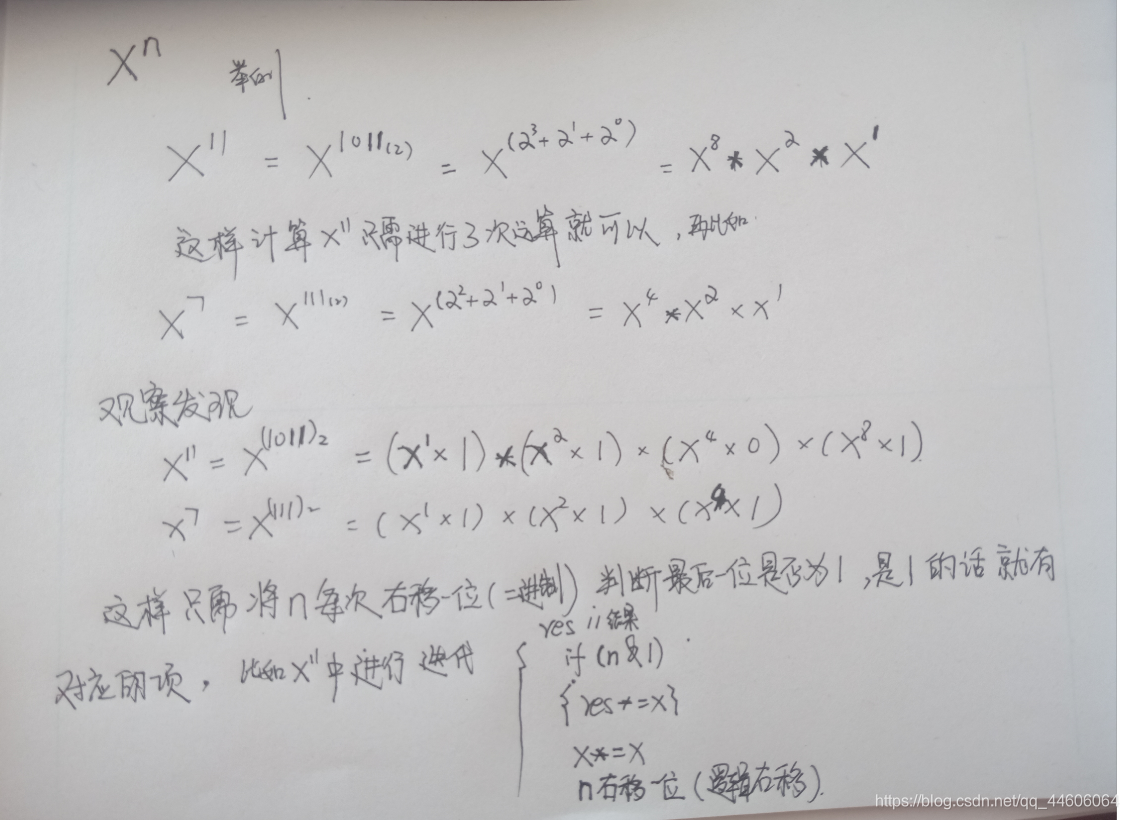 xⁿ 举例
x¹¹ = x^1011(2) = x^(2³+2¹+2⁰) = x⁸ * x² * x¹
这样计算x¹¹只需进行3次运算就可以,再比如.
x⁷ = x^111(2) = x^(2²+2¹+2⁰) = x⁴ * x² × x¹
观察发现
x¹¹ = x^(1011)₂ = (x¹×1) * (x²×1) × (x⁴×0) × (x⁸×1)
x⁷ = x^(111)₂ = (x¹×1) × (x²×1) × (x⁴×1)
这样只需将n每次右移一位(二进制) 判断最后一位是否为1,是1的话就有
对应的项,比如x¹¹中进行迭代
res // 结果
if (n&1)
{res*=x}
x*=x
n右移一位(逻辑右移).
https://blog.csdn.net/qq_44606064